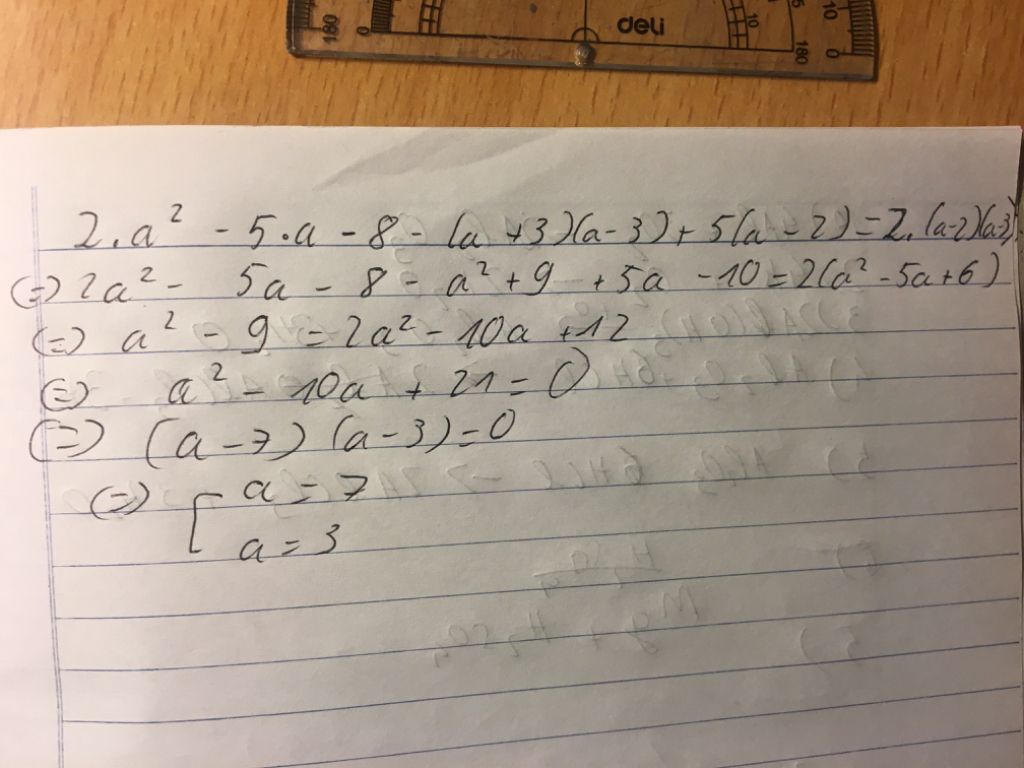 180 0 deli 10 5 180 10 0
2.a² - 5.a - 8 - (a +3)(a-3) + 5(a - 2) = 2.(a-2)(a-3)
(=) 2a² - 5a - 8 - a² + 9 + 5a - 10 = 2(a² - 5a + 6)
(=) a² - 9 = 2a² - 10a + 12
(=) a² - 10a + 21 = 0
(=) (a - 7) (a - 3) = 0
(=) [ a = 7
a = 3